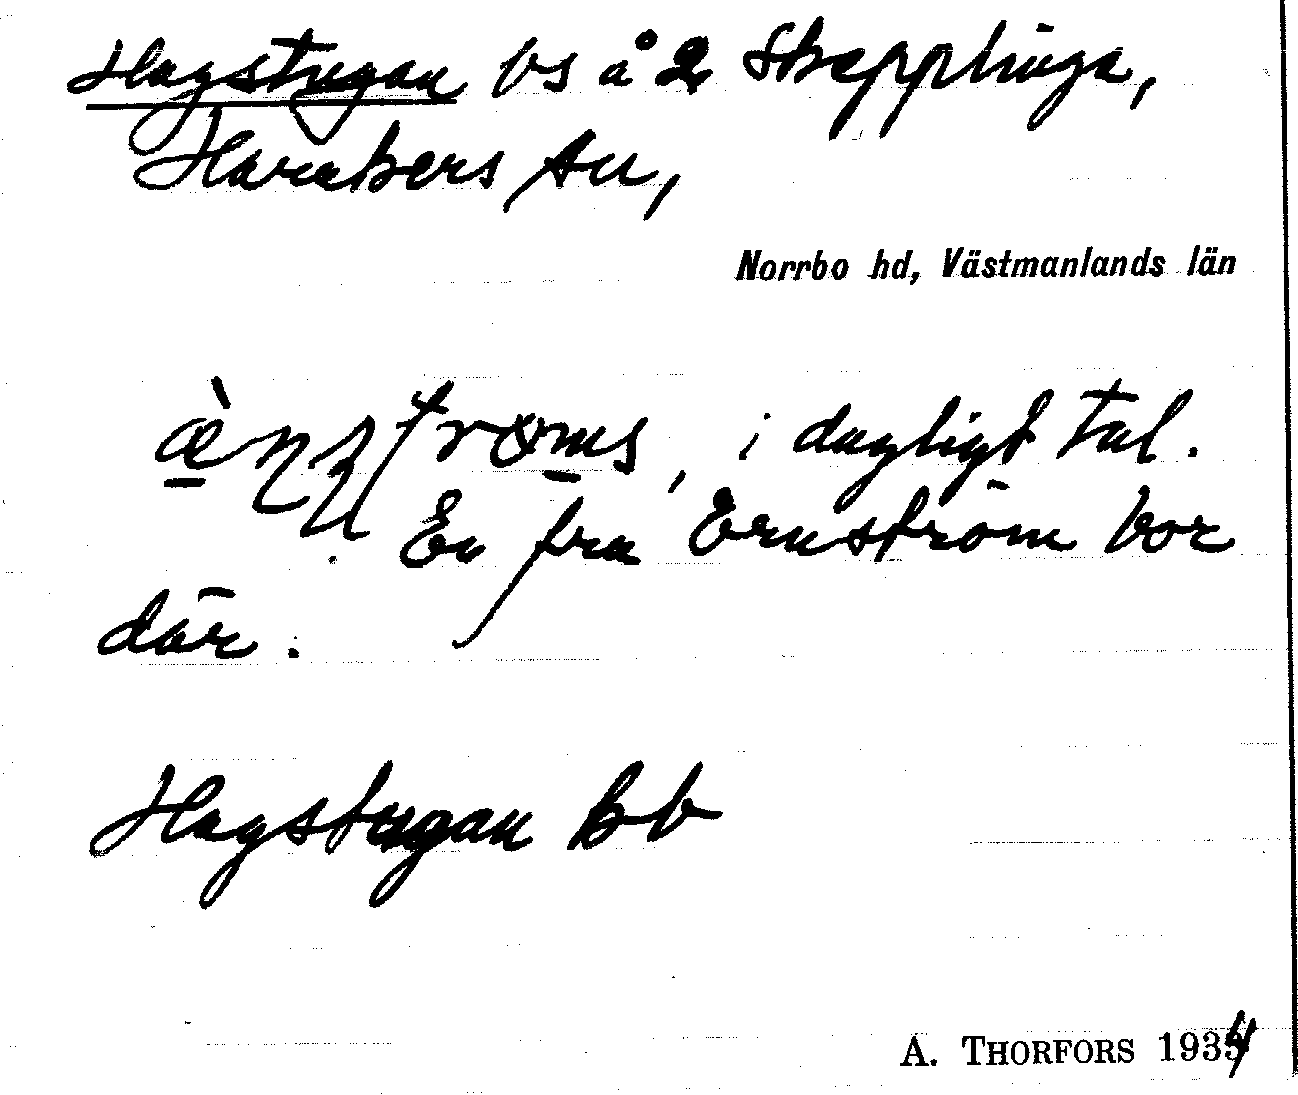 Hagstugan bs å 2 Skepplinga,
Harakers sn,
Norrbo hd, Västmanlands län
æ̀nstrøms, i dagligt tal.
En fru Ernström bor
där.
Hagstugan Eb
A. THORFORS 1934